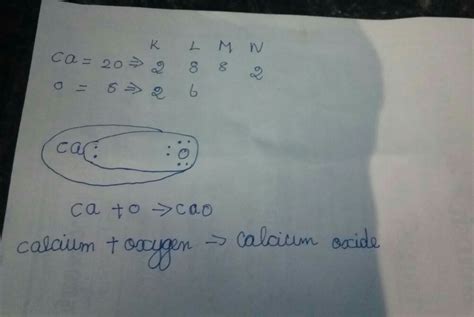 K L M N
Ca = 20 ⇒ 2 8 8 2
O = 6 ⇒ 2 6
Ca : : O :
Ca + O → CaO
calcium + oxygen → calcium oxide